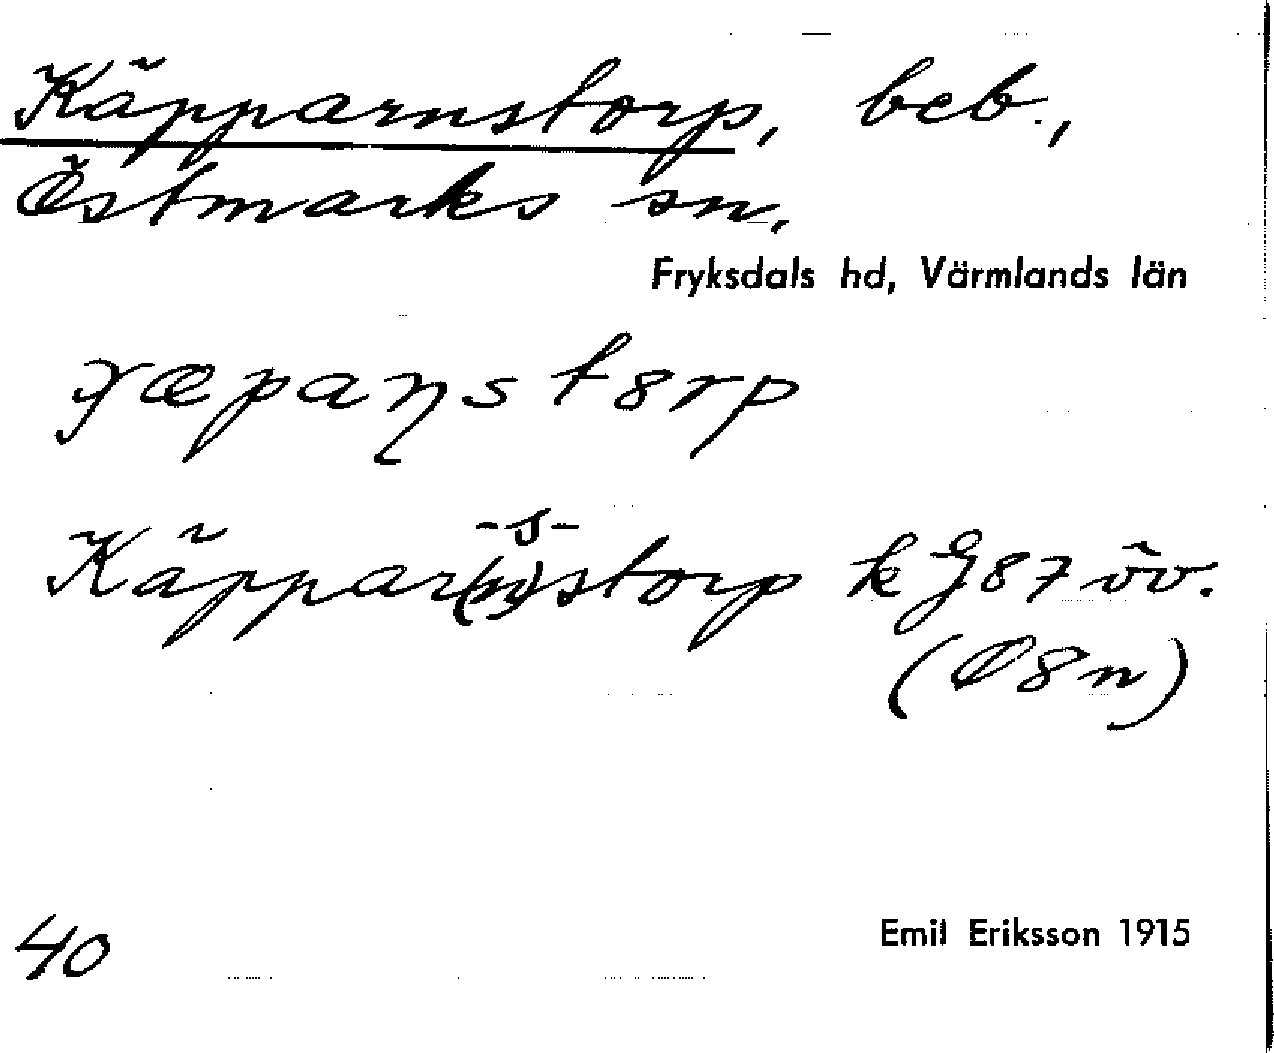 Käpparnstorp, beb.,
Östmarks sn.
Fryksdals hd, Värmlands län
-s-
Käppar(n)storp k J87 öv.
(Ö8n)
40
Emil Eriksson 1915